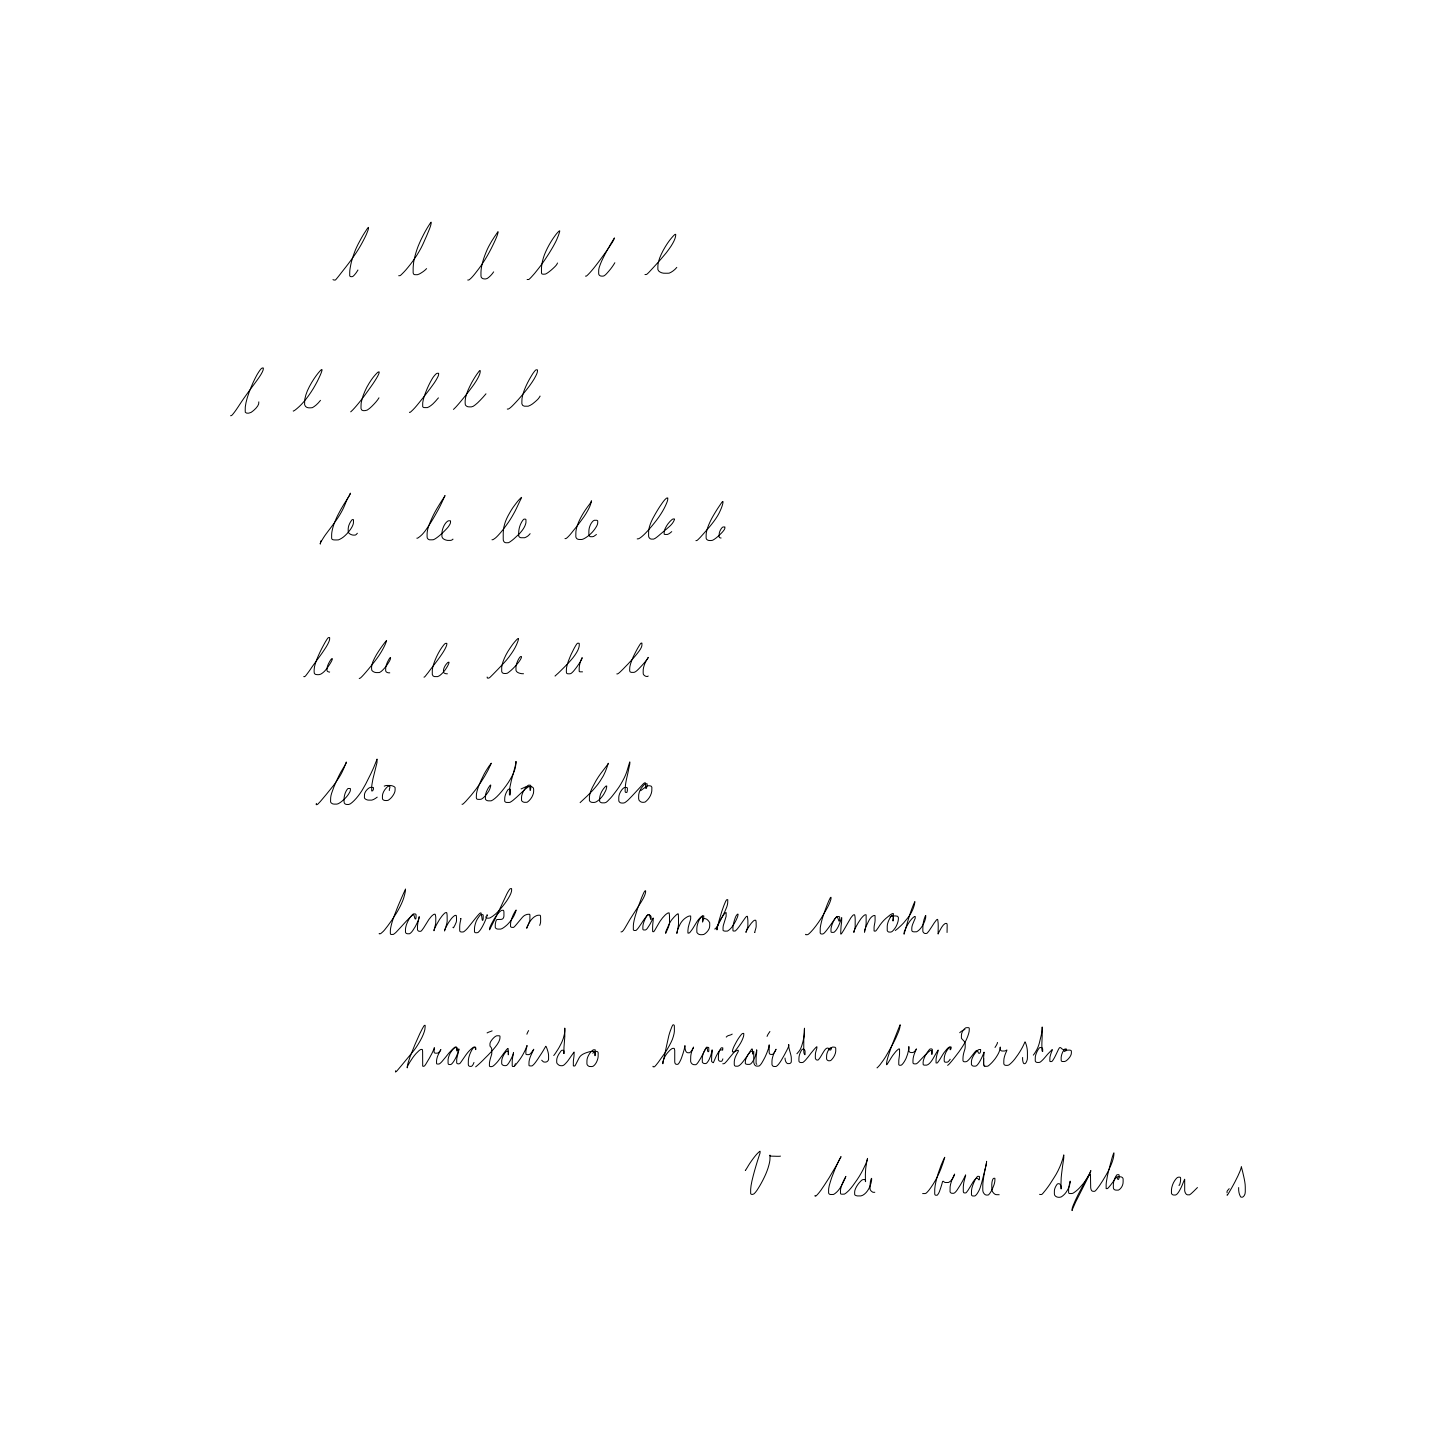 l l l l l l
l l l l l l
le le le le le le
le le le le le le
leto leto leto
lamoken lamoken lamoken
hračkárstvo hračkárstvo hračkárstvo
V lete bude teplo a s